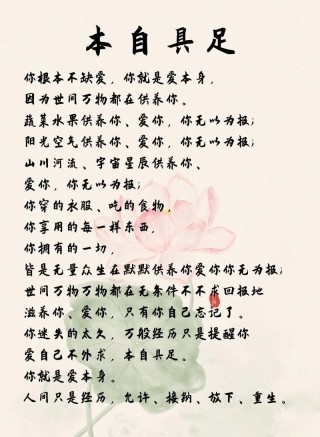 本自具足
你根本不缺爱，你就是爱本身，
因为世间万物都在供养你。
蔬菜水果供养你、爱你，你无以为报；
阳光空气供养你、爱你，你无以为报；
山川河流、宇宙星辰供养你、
爱你，你无以为报；
你穿的衣服、吃的食物，
你享用的每一样东西，
你拥有的一切，
皆是无量众生在默默供养你爱你你无为报；
世间万物万物都在无条件不不求回报地
滋养你、爱你，只有你自己忘记了。
你迷失的太久，万般经历只是提醒你
爱自己不外求，本自具足。
你就是爱本身。
人间只是经历，允许、接纳、放下、重生。